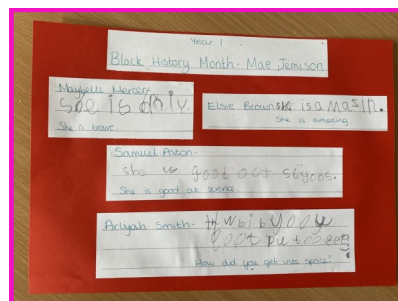 Year 1
Black History Month- Mae Jemison
Maybelle Mercer-
She is
She is brave
Elsie Brown- she is amasin.
She is amazing
Samuel Aston-
she is good oot
She is good at science
Arlyah Smith-
How did you get into space?